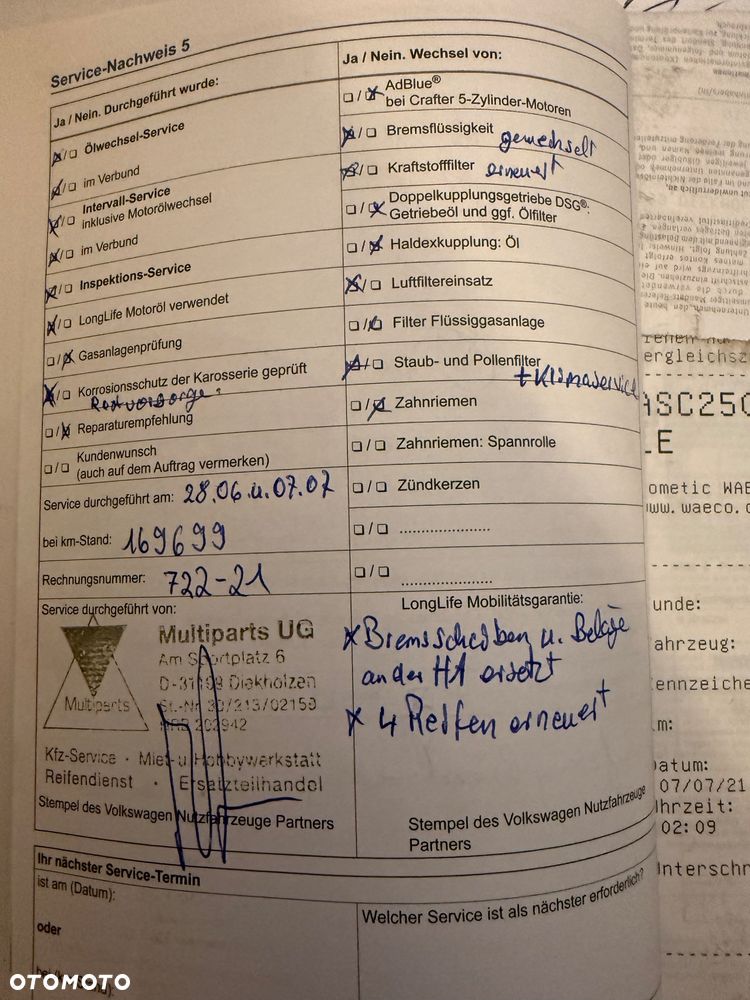 Service-Nachweis 5
Ja / Nein. Durchgeführt wurde:
Ölwechsel-Service
im Verbund
Intervall-Service
inklusive Motorölwechsel
im Verbund
Inspektions-Service
LongLife Motoröl verwendet
Gasanlagenprüfung
Korrosionsschutz der Karosserie geprüft
Rostvorsorge
Reparaturempfehlung
Kundenwunsch
(auch auf dem Auftrag vermerken)
Service durchgeführt am: 28.06 u. 07.07
bei km-Stand: 169699
Rechnungsnummer: 722-21
Service durchgeführt von:
Multiparts
Multiparts UG
Am Sportplatz 6
D-31199 Diekholzen
St.-Nr 30/213/02159
HRB 202942
Kfz-Service · Miet- u. Hobbywerkstatt
Reifendienst · Ersatzteilhandel
Stempel des Volkswagen Nutzfahrzeuge Partners
Ja / Nein. Wechsel von:
AdBlue®
bei Crafter 5-Zylinder-Motoren
Bremsflüssigkeit gewechselt
Kraftstofffilter erneuert
Doppelkupplungsgetriebe DSG®:
Getriebeöl und ggf. Ölfilter
Haldexkupplung: Öl
Luftfiltereinsatz
Filter Flüssiggasanlage
Staub- und Pollenfilter
+ Klimaservice
Zahnriemen
Zahnriemen: Spannrolle
Zündkerzen
LongLife Mobilitätsgarantie:
x Bremsscheiben u. Beläge
an der HA ersetzt
x 4 Reifen erneuert
Stempel des Volkswagen Nutzfahrzeuge
Partners
Ihr nächster Service-Termin
ist am (Datum):
oder
Welcher Service ist als nächster erforderlich?
ergleichsz
ASC25
LE
ometic WAE
www.waeco.
unde:
ahrzeug:
ennzeiche
m:
atum:
07/07/21
hrzeit:
02:09
nterschr
OTOMOTO